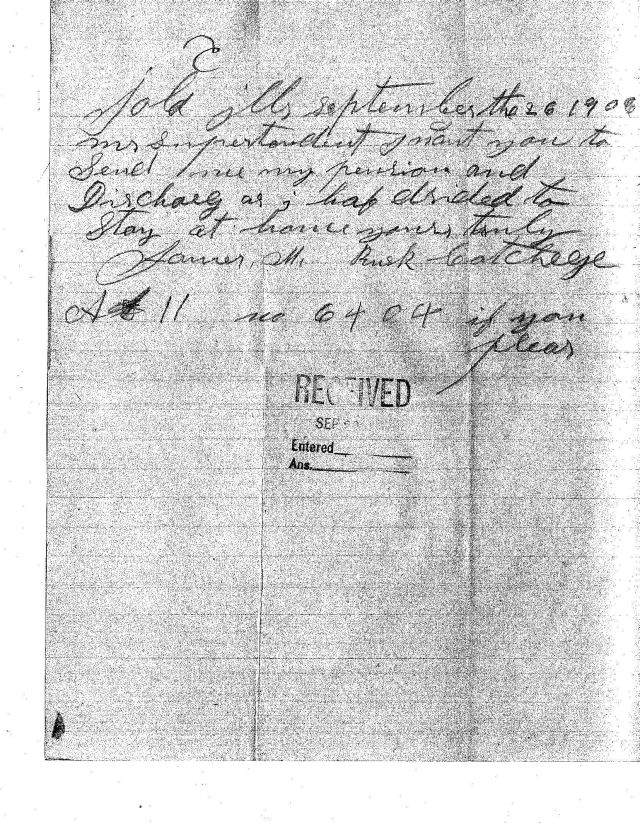 Iola Ills september the 26 1908
mr Supertendent I want you to
Send me my pension and
Discharg as i haf dsided to
Stay at home yours truly
James M. Rusk Cotchege
A 11 no 6404 if you
pleas
RECEIVED
SEP
Entered
Ans.